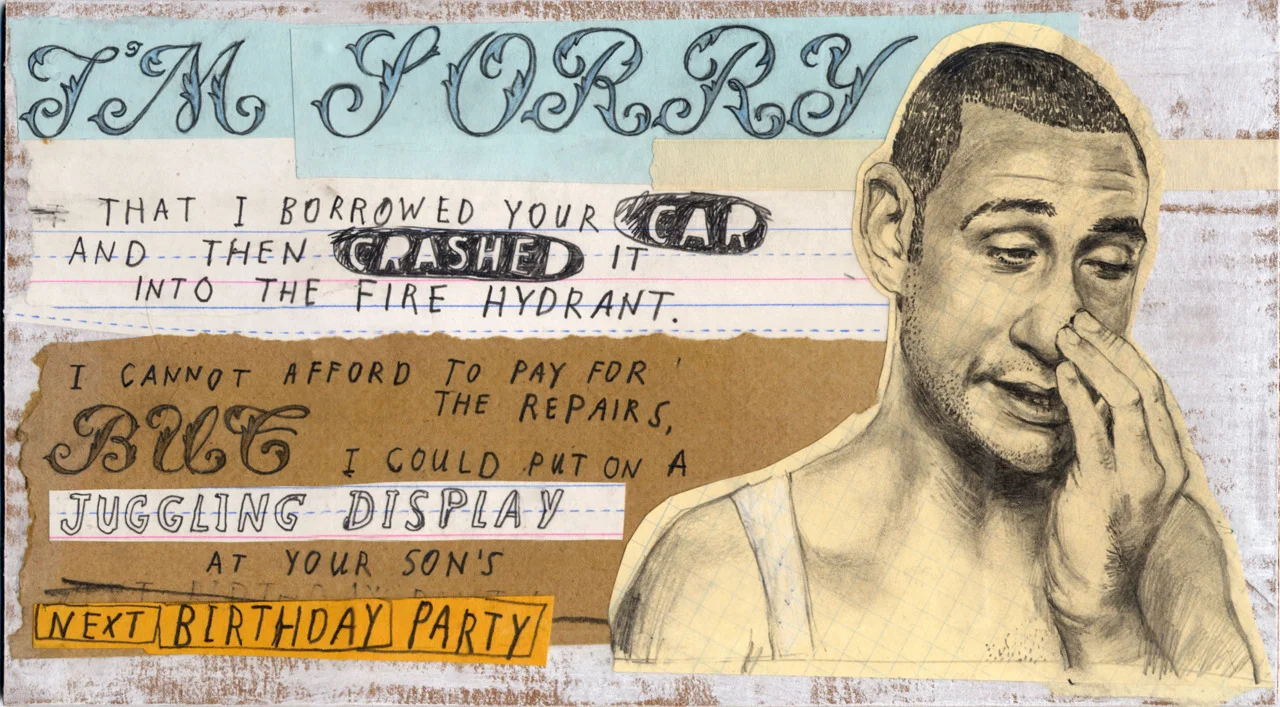 I'M SORRY
THAT I BORROWED YOUR CAR
AND THEN CRASHED IT
INTO THE FIRE HYDRANT.
I CANNOT AFFORD TO PAY FOR
THE REPAIRS,
BUT I COULD PUT ON A
JUGGLING DISPLAY
AT YOUR SON'S
NEXT BIRTHDAY PARTY